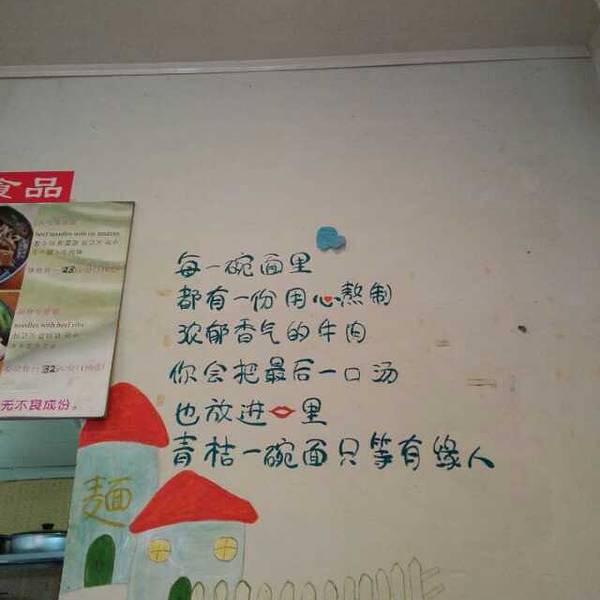 食品
beef noodles with
noodles with beef ribs
无不良成份。
每一碗面里
都有一份用心熬制
浓郁香气的牛肉
你会把最后一口汤
也放进里
青桔一碗面只等有缘人
麺